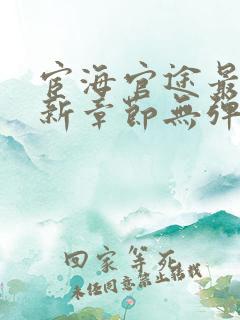 宦海官途最
新章節無彈
回家等死
未經同意禁止轉載